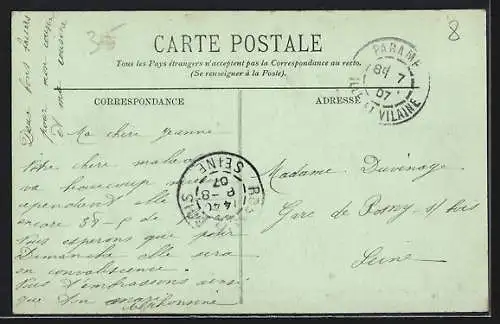 35
8
CARTE POSTALE
Tous les Pays étrangers n'acceptent pas la Correspondance au recto.
(Se renseigner à la Poste).
CORRESPONDANCE
ADRESSE
PARAMÉ
8H 7
07
ILLE ET VILAINE
Deux bons baisers
pour mon
et ma cousine
Ma chère Jeanne
Votre chère
va beaucoup
cependant elle
encore 38
Nous espérons que pour
Dimanche elle sera
en convalescence.
Nous t'embrassons ainsi
que ton
Madame Duvinage
Gare de Rosny s/ bois
Seine
SEINE
07
8
1440